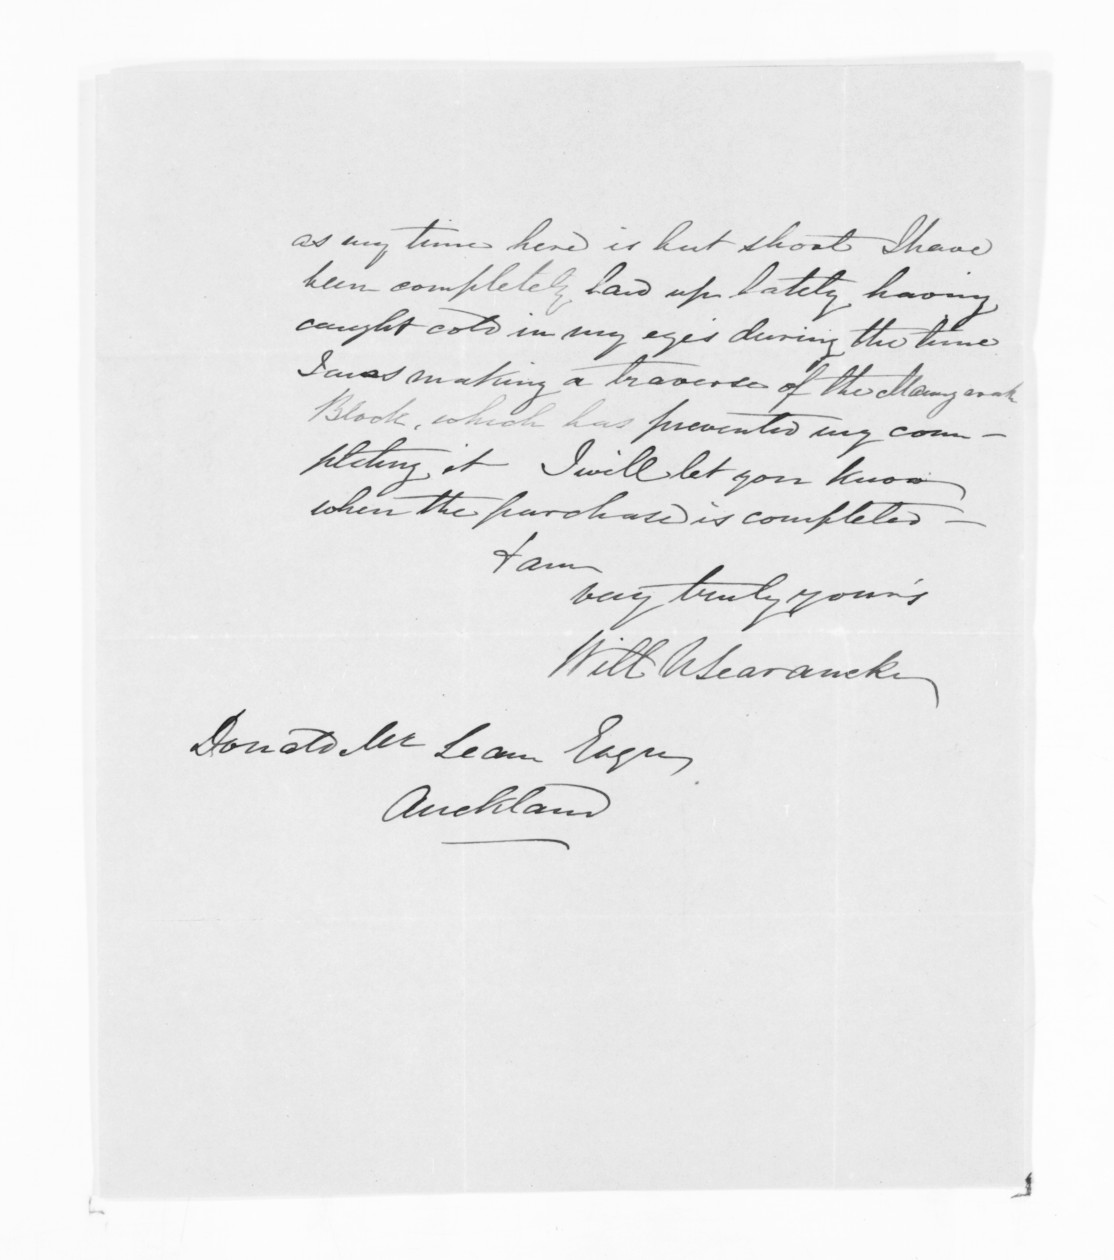 as my time here is but short I have
been completely laid up lately having
caught cold in my eyes during the time
I was making a traverse of the
Block, which has prevented my com-
pleting it I will let you know
when the purchase is completed -
I am
very truly your's
Will N Searancke
Donald Mc Lean Esqre
Auckland